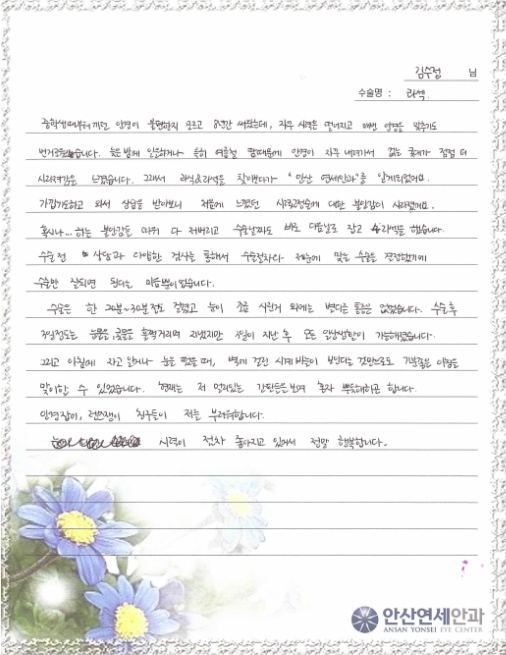 김수정 님
수술명 : 라섹.
중학생때부터 끼던 안경이 불편한지 모르고 8년간 써왔는데, 자꾸 시력은 떨어지고 매번 안경을 맞추기도
번거로웠습니다. 눈물에 민감하거나 특히 여름철 땀때문에 안경이 자꾸 내려가서 없는 콧대가 점점 더
사라져감을 느꼈습니다. 그래서 라식&라섹을 찾아봤다가 "안산 연세안과"를 알게되었어요.
가깝기도하고 와서 상담을 받아보니 처음에 느꼈던 시력교정술에 대한 불안감이 사라졌어요.
혹시나... 하는 불안감을 마저 다 져버리고 수술날짜도 바로 다음날로 잡고 수술을 했습니다.
수술전 상담과 다양한 검사를 통해서 수술절차와 저눈에 맞는 수술을 결정했기에
수술만 잘되면 된다는 마음뿐이었습니다.
수술은 한 20분~30분 정도 걸렸고 눈이 조금 시린거 외에는 별다른 통증은 없었습니다. 수술후
3일정도는 눈물을, 콧물을 훌쩍거리며 지냈지만 3일이 지난 후 모든 일상생활이 가능해졌습니다.
그리고 아침에 자고 일어나 눈을 떴을 때, 벽에 걸린 시계 바늘이 보인다는 것만으로도 기분좋은 아침을
맞이할 수 있었습니다. 현재는 저 멀리있는 간판들을 보며 혼자 뿌듯해하곤 합니다.
안경잡이, 렌즈쟁이 친구들이 저를 부러워합니다.
시력이 점차 좋아지고 있어서 정말 행복합니다.
안산연세안과
ANSAN YONSEI EYE CENTER